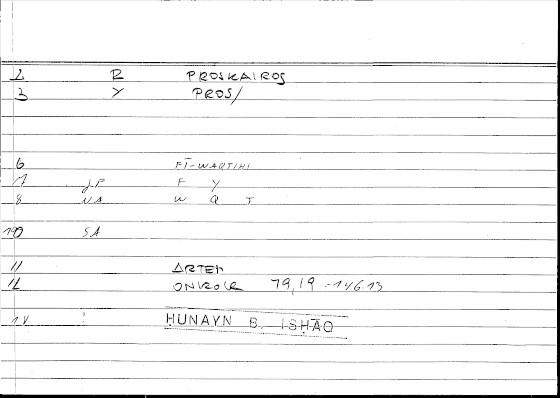 2 R PROSKAIROS
3 Y PROS/
6 FĪ-WAQTIHI
7 JP F Y
8 NA W Q T
10 SA
11 ARTEM
12 ONIROCR 79,19 - 14613
14 ḤUNAYN B. ISḤĀQ